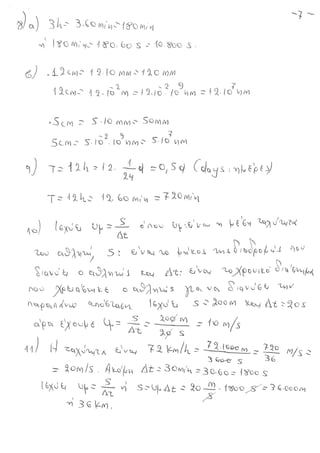 -7-
8) α) 3h = 3·60min = 180min
ή 180min = 180·60s = 10.800s.
β) ·12cm = 12·10mm = 120mm
12cm = 12·10⁻²m = 12·10⁻²·10⁹nm = 12·10⁷nm
·5cm = 5·10mm = 50mm
5cm = 5·10⁻²·10⁹nm = 5·10⁷nm
9) T = 12h = 12·1/24 d = 0,5d (days: ημέρες)
T = 12h = 12·60min = 720min
10) Ισχύει υμ = S/Δt όπου υμ: είναι η μέση ταχύτητα
του αθλητή, S: είναι το μήκος της διαδρομής που
διανύει ο αθλητής και Δt: είναι το χρονικό διάστημα
που χρειάστηκε ο αθλητής για να διανύσει την
παραπάνω απόσταση. Ισχύει S = 200m και Δt = 20s
άρα έχουμε υμ = S/Δt = 200m/20s = 10 m/s
11) Η ταχύτητα είναι 72km/h = 72·1000m/3600s = 720/36 m/s =
= 20m/s. Ακόμη Δt = 30min = 30·60 = 1800s
Ισχύει υμ = S/Δt ή S = υμ·Δt = 20 m/s · 1800s = 36.000m
ή 36km.